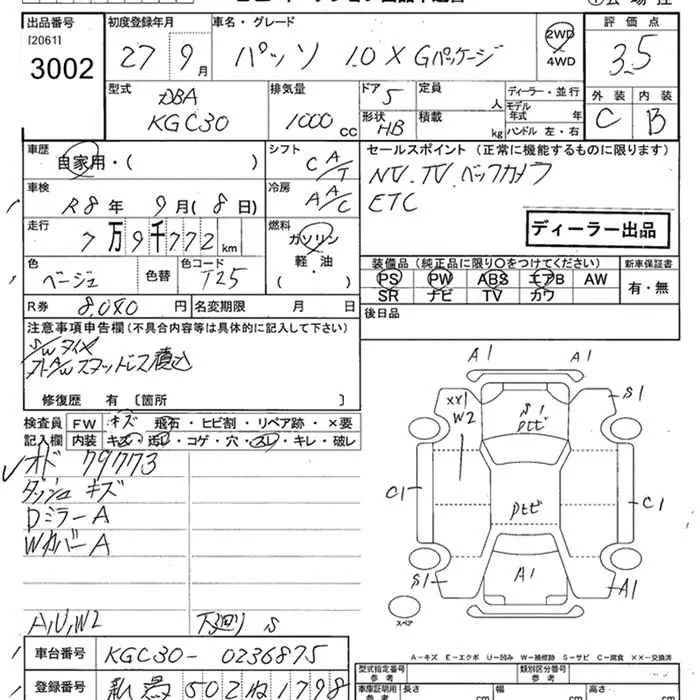 出品番号 初度登録年月 車名・グレード 評価点
[2061]
3002 27 9月 パッソ 1.0 X Gパッケージ 2WD 4WD 3.5
型式 排気量 ドア 定員 ディーラー・並行 外装 内装
DBA 5 人 モデル年式 年
KGC30 1000cc 形状 HB 積載 kg ハンドル 左・右 C B
車歴 シフト セールスポイント (正常に機能するものに限ります)
自家用・( ) C A/T NV.TV.バックカメラ
車検 冷房 ETC
R8年 9月(8日) A A/C
走行 燃料 ディーラー出品
7万9千772km ガソリン
軽・油
色 色替 色コード ( ) 装備品(純正品に限り○をつけてください) 新車保証書
ベージュ T25 PS PW ABS エアB AW 有・無
SR ナビ TV カワ
R券 8,040円 名変期限 月 日 後日品
注意事項申告欄(不具合内容等は具体的に記入して下さい)
スタッドレス積込
修復歴 有 〔箇所 〕
検査員 FW キズ 飛石・ヒビ割・リペア跡・×要
記入欄 内装 キズ・汚レ・コゲ・穴・スレ・キレ・破レ
オド 79773
ダッシュ キズ
DミラーA
WカバーA
A,U,W2 下廻り S
A1 A1
S1
XX1
W2
S1
Dヒビ
C1 Dヒビ C1
S1 A1 A1
スペア
A－キズ E－エクボ U－凹み W－補修跡 S－サビ C－腐食 XX－交換済
車台番号 KGC30-0236875 型式指定番号 参考 類別区分番号 参考
登録番号 502 ね1798 車庫証明用 参考 長さ cm 幅 cm 高さ cm